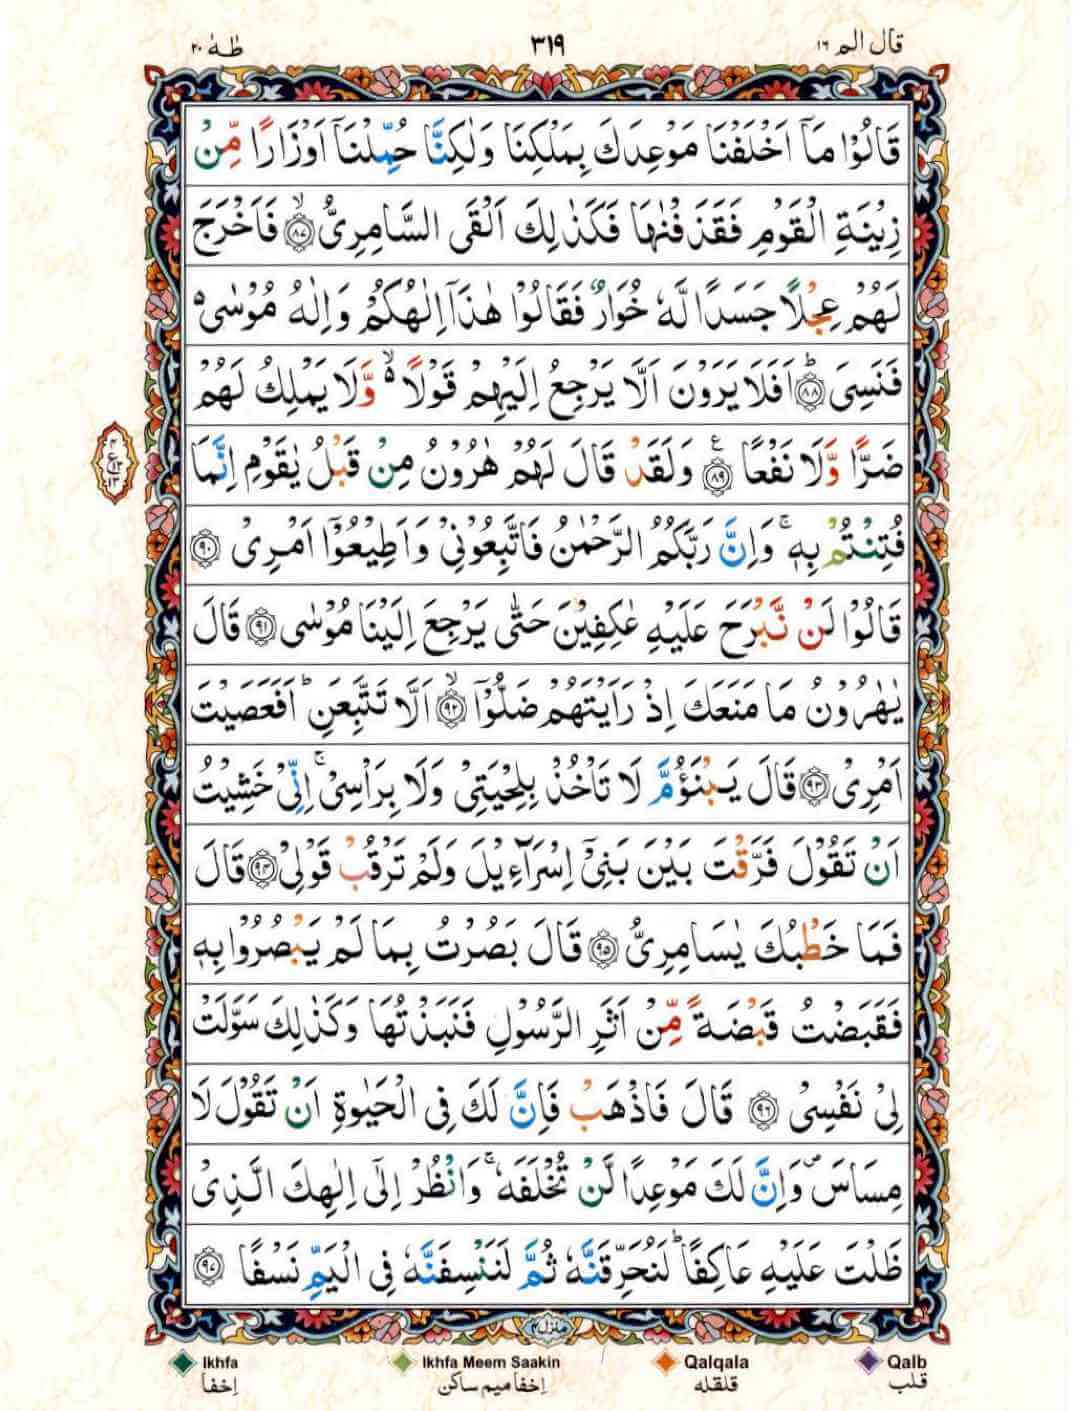 قال الم ١٦
٣١٩
طٰهٰ ٢٠
قَالُوْا مَاۤ اَخْلَفْنَا مَوْعِدَكَ بِمَلْكِنَا وَلٰكِنَّا حُمِّلْنَاۤ اَوْزَارًا مِّنْ
زِيْنَةِ الْقَوْمِ فَقَذَفْنٰهَا فَكَذٰلِكَ اَلْقَى السَّامِرِىُّ ۙ﴿٨٧﴾ فَاَخْرَجَ
لَهُمْ عِجْلًا جَسَدًا لَّهٗ خُوَارٌ فَقَالُوْا هٰذَاۤ اِلٰهُكُمْ وَاِلٰهُ مُوْسٰى ە
فَنَسِىَ ؕ﴿٨٨﴾ اَفَلَا يَرَوْنَ اَلَّا يَرْجِعُ اِلَيْهِمْ قَوْلًا ە ۙ وَّلَا يَمْلِكُ لَهُمْ
ضَرًّا وَّلَا نَفْعًا ࣖ﴿٨٩﴾ وَلَقَدْ قَالَ لَهُمْ هٰرُوْنُ مِنْ قَبْلُ يٰقَوْمِ اِنَّمَا
٤
ع
١٣
١٣
فُتِنْتُمْ بِهٖ ۚ وَاِنَّ رَبَّكُمُ الرَّحْمٰنُ فَاتَّبِعُوْنِىْ وَاَطِيْعُوْۤا اَمْرِىْ ﴿٩٠﴾
قَالُوْا لَنْ نَّبْرَحَ عَلَيْهِ عٰكِفِيْنَ حَتّٰى يَرْجِعَ اِلَيْنَا مُوْسٰى ﴿٩١﴾ قَالَ
يٰهٰرُوْنُ مَا مَنَعَكَ اِذْ رَاَيْتَهُمْ ضَلُّوْۤا ۙ﴿٩٢﴾ اَلَّا تَتَّبِعَنِ ؕ اَفَعَصَيْتَ
اَمْرِىْ ﴿٩٣﴾ قَالَ يَبْنَؤُمَّ لَا تَاْخُذْ بِلِحْيَتِىْ وَلَا بِرَاْسِىْ ۚ اِنِّىْ خَشِيْتُ
اَنْ تَقُوْلَ فَرَّقْتَ بَيْنَ بَنِىْۤ اِسْرَآءِيْلَ وَلَمْ تَرْقُبْ قَوْلِىْ ﴿٩٤﴾ قَالَ
فَمَا خَطْبُكَ يٰسَامِرِىُّ ﴿٩٥﴾ قَالَ بَصُرْتُ بِمَا لَمْ يَبْصُرُوْا بِهٖ
فَقَبَضْتُ قَبْضَةً مِّنْ اَثَرِ الرَّسُوْلِ فَنَبَذْتُهَا وَكَذٰلِكَ سَوَّلَتْ
لِىْ نَفْسِىْ ﴿٩٦﴾ قَالَ فَاذْهَبْ فَاِنَّ لَكَ فِى الْحَيٰوةِ اَنْ تَقُوْلَ لَا
مِسَاسَ ۪ وَاِنَّ لَكَ مَوْعِدًا لَّنْ تُخْلَفَهٗ ۚ وَانْظُرْ اِلٰٓى اِلٰهِكَ الَّذِىْ
ظَلْتَ عَلَيْهِ عَاكِفًا ؕ لَنُحَرِّقَنَّهٗ ثُمَّ لَنَنْسِفَنَّهٗ فِى الْيَمِّ نَسْفًا ﴿٩٧﴾
منزل ٤
Ikhfa Ikhfa Meem Saakin Qalqala Qalb
اِخفا اِخفا میم ساکن قلقله قلب